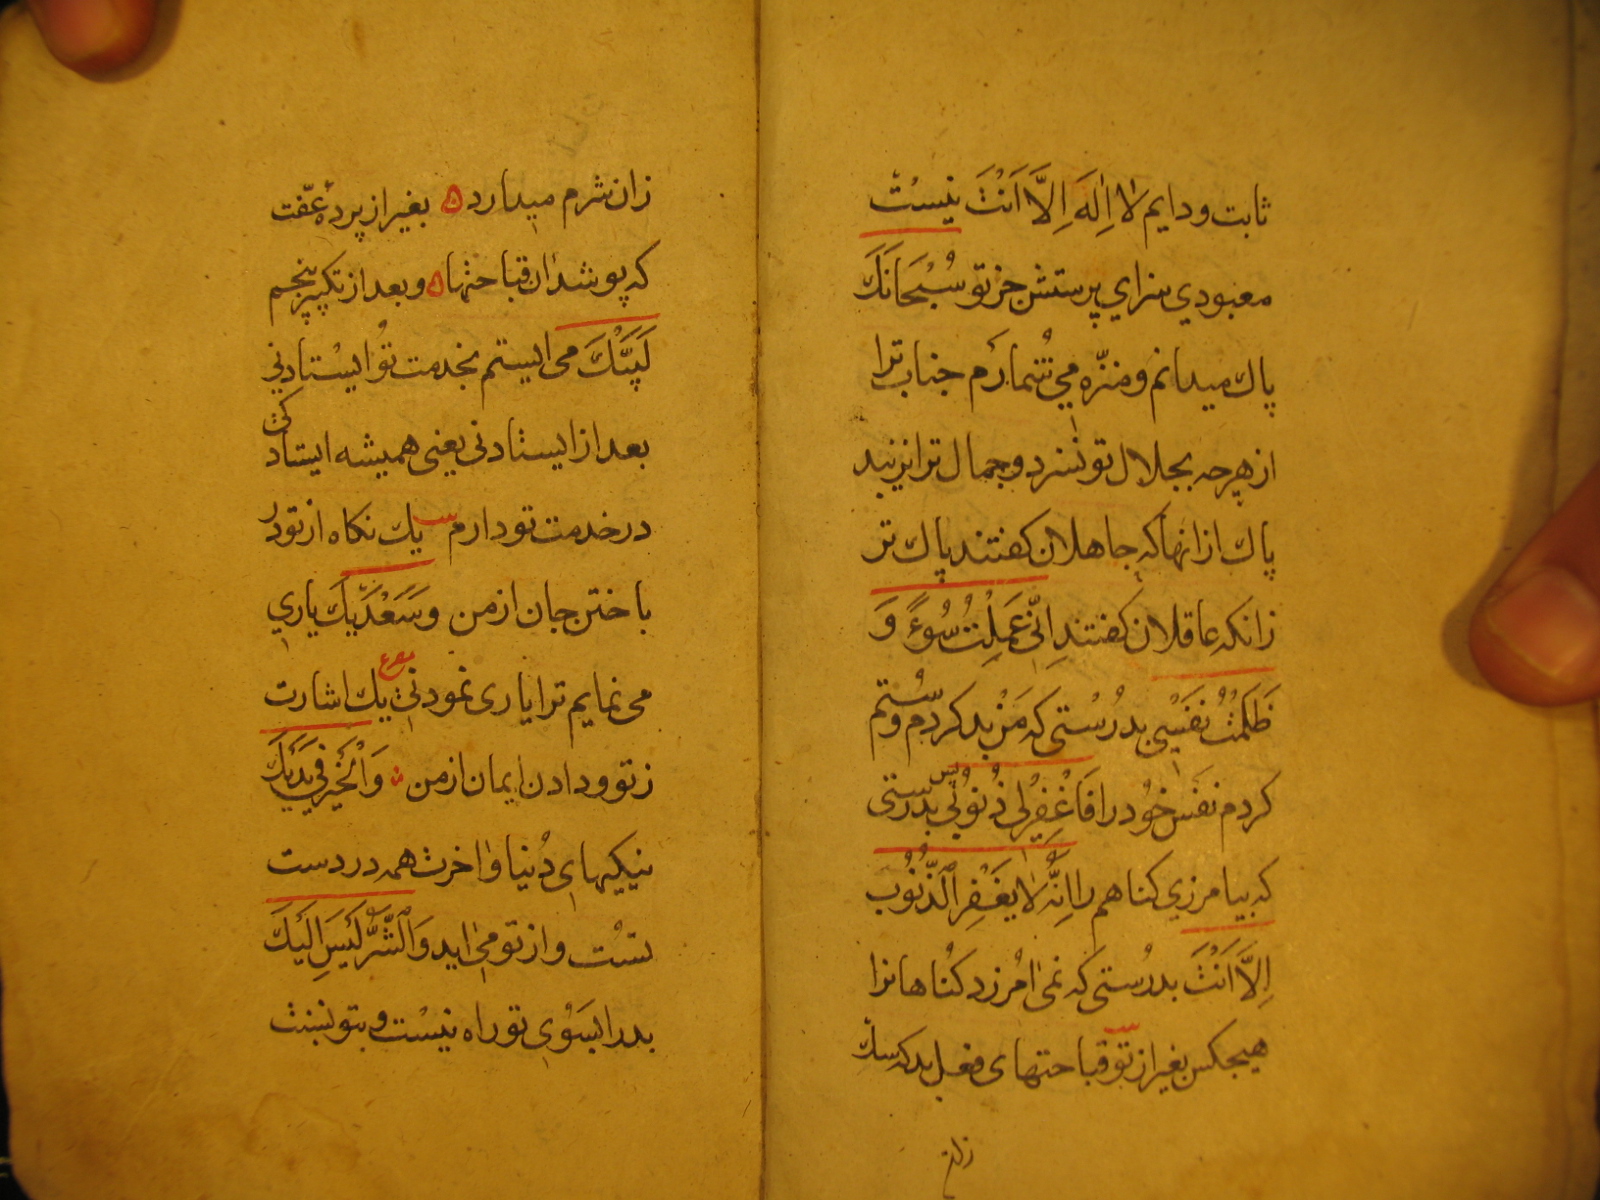 ثابت و دایم لَا اِلٰهَ اِلَّا اَنْتَ نیست
معبودي سزاي پرستش جز تو سُبْحَانَكَ
پاك میدانم و منزّه مي شُمارَم جناب ترا
از هرچه بجلال تو نسزد و جمال ترا نزیبد
پاك از انها که جاهلان کفتند پاك تر
زانکه عاقلان کفتند اِنّي عَمِلْتُ سُوءً وَ
ظَلَمْتُ نَفْسِي بدرستی که مَنْ بد کردم و ستم
کردم نفس خود را فَاغْفِرْلِي ذُنُوْبِي پس بدرستی
که بیامرزي کناهم را اِنَّهُ لَا يَغْفِرُ الذُّنُوْبَ
اِلَّا اَنْتَ بدرستی که نمی امرزد کناهانرا
هیچکس بغیر از تو قباحتهای فعل بد که سك
زان
زان شرم میدارد بغیر از پردهٔ عفّت
که پوشد ان قباحتها و بعد از تکبیر پنجم
لَبَّيْكَ می ایستم بخدمت تو ایستادنی
بعد از ایستادنی یعنی همیشه ایستادکی
در خدمت تو دارم یك نکاه از تو در
باختن جان از من وَسَعْدَيْكَ یاري
می نمایم ترا یاری نمودنی مصرع یك اشارت
ز تو و دادن ایمان از من وَالْخَيْرُ فِي يَدَيْكَ
نیکیهای دُنیا و اخرت همه در دست
تست و از تو می اید وَالشَّرُّ لَيْسَ اِلَيْكَ
بد را بسوی تو راه نیست و بتو نسبت